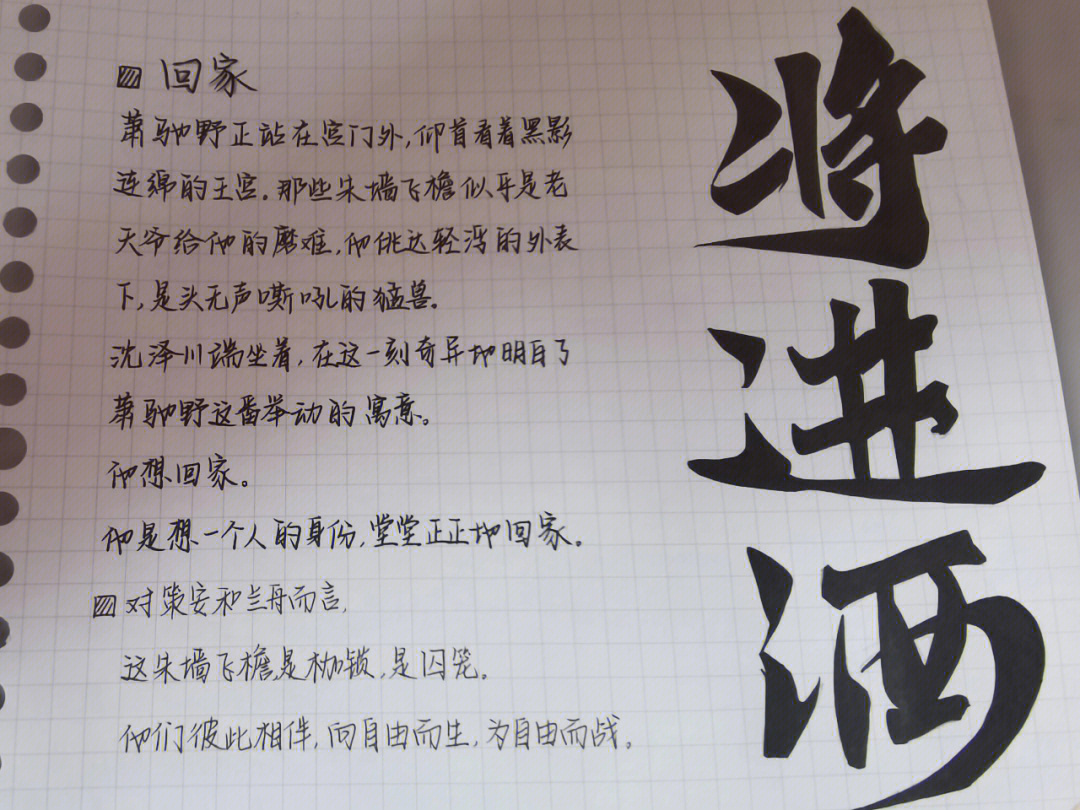 回家
萧驰野正站在宫门外，仰首看着黑影
连绵的王宫。那些朱墙飞檐似乎是老
天爷给他的磨难，他佻达轻浮的外表
下，是头无声嘶吼的猛兽。
沈泽川端坐着，在这一刻奇异地明白了
萧驰野这番举动的寓意。
他想回家。
他是想一个人的身份，堂堂正正地回家。
对策安和兰舟而言，
这朱墙飞檐，是枷锁，是囚笼。
他们彼此相伴，向自由而生，为自由而战。
将进酒